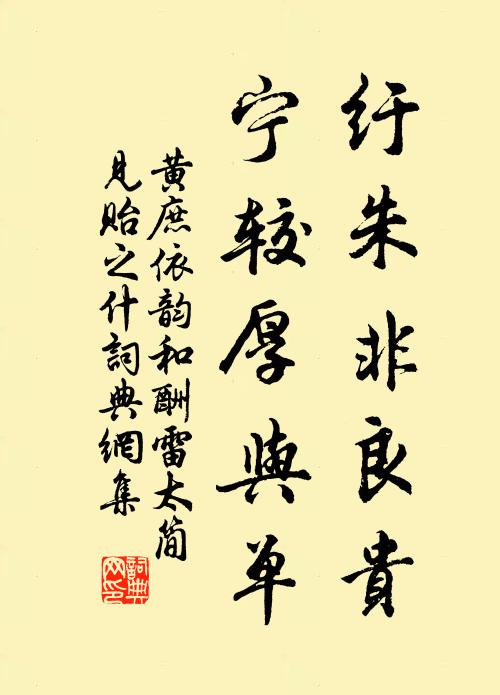 纡朱非良貴
宁较厚與单
黄庶依韵和酬雷太简
見贻之什詞典網集
詞典
网印